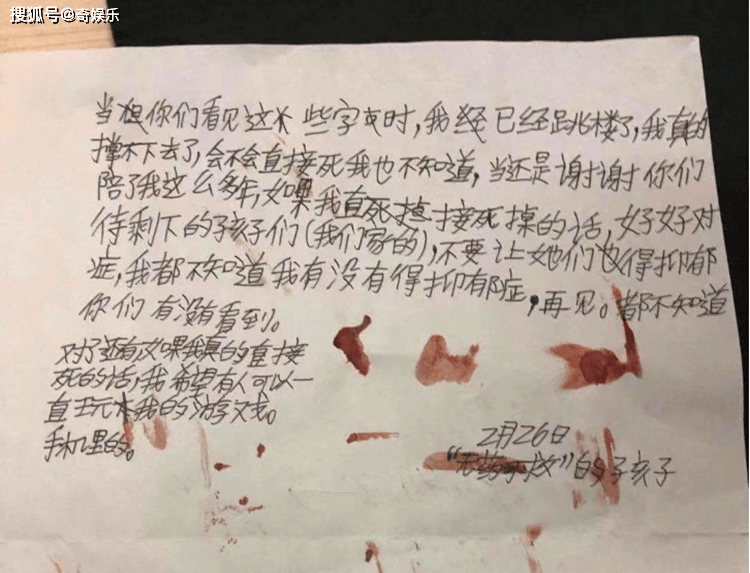 搜狐号@奇娱乐
当你们看见这些字时，我经已经跳楼了，我真的
撑不下去了，会不会直接死我也不知道，当还是谢谢你们
陪了我这么多年，如果我直死接死掉的话，好好对
待剩下的孩子们（我们家的），不要让她们也得抑郁
症，我都不知道我有没有得抑郁症，再见。都不知道
你们有没有看到。
对了还有如果我真的直接
死的话，我希望有人可以一
直玩我的游戏。
手机里的。
2月26日
“无药可救”的子孩子